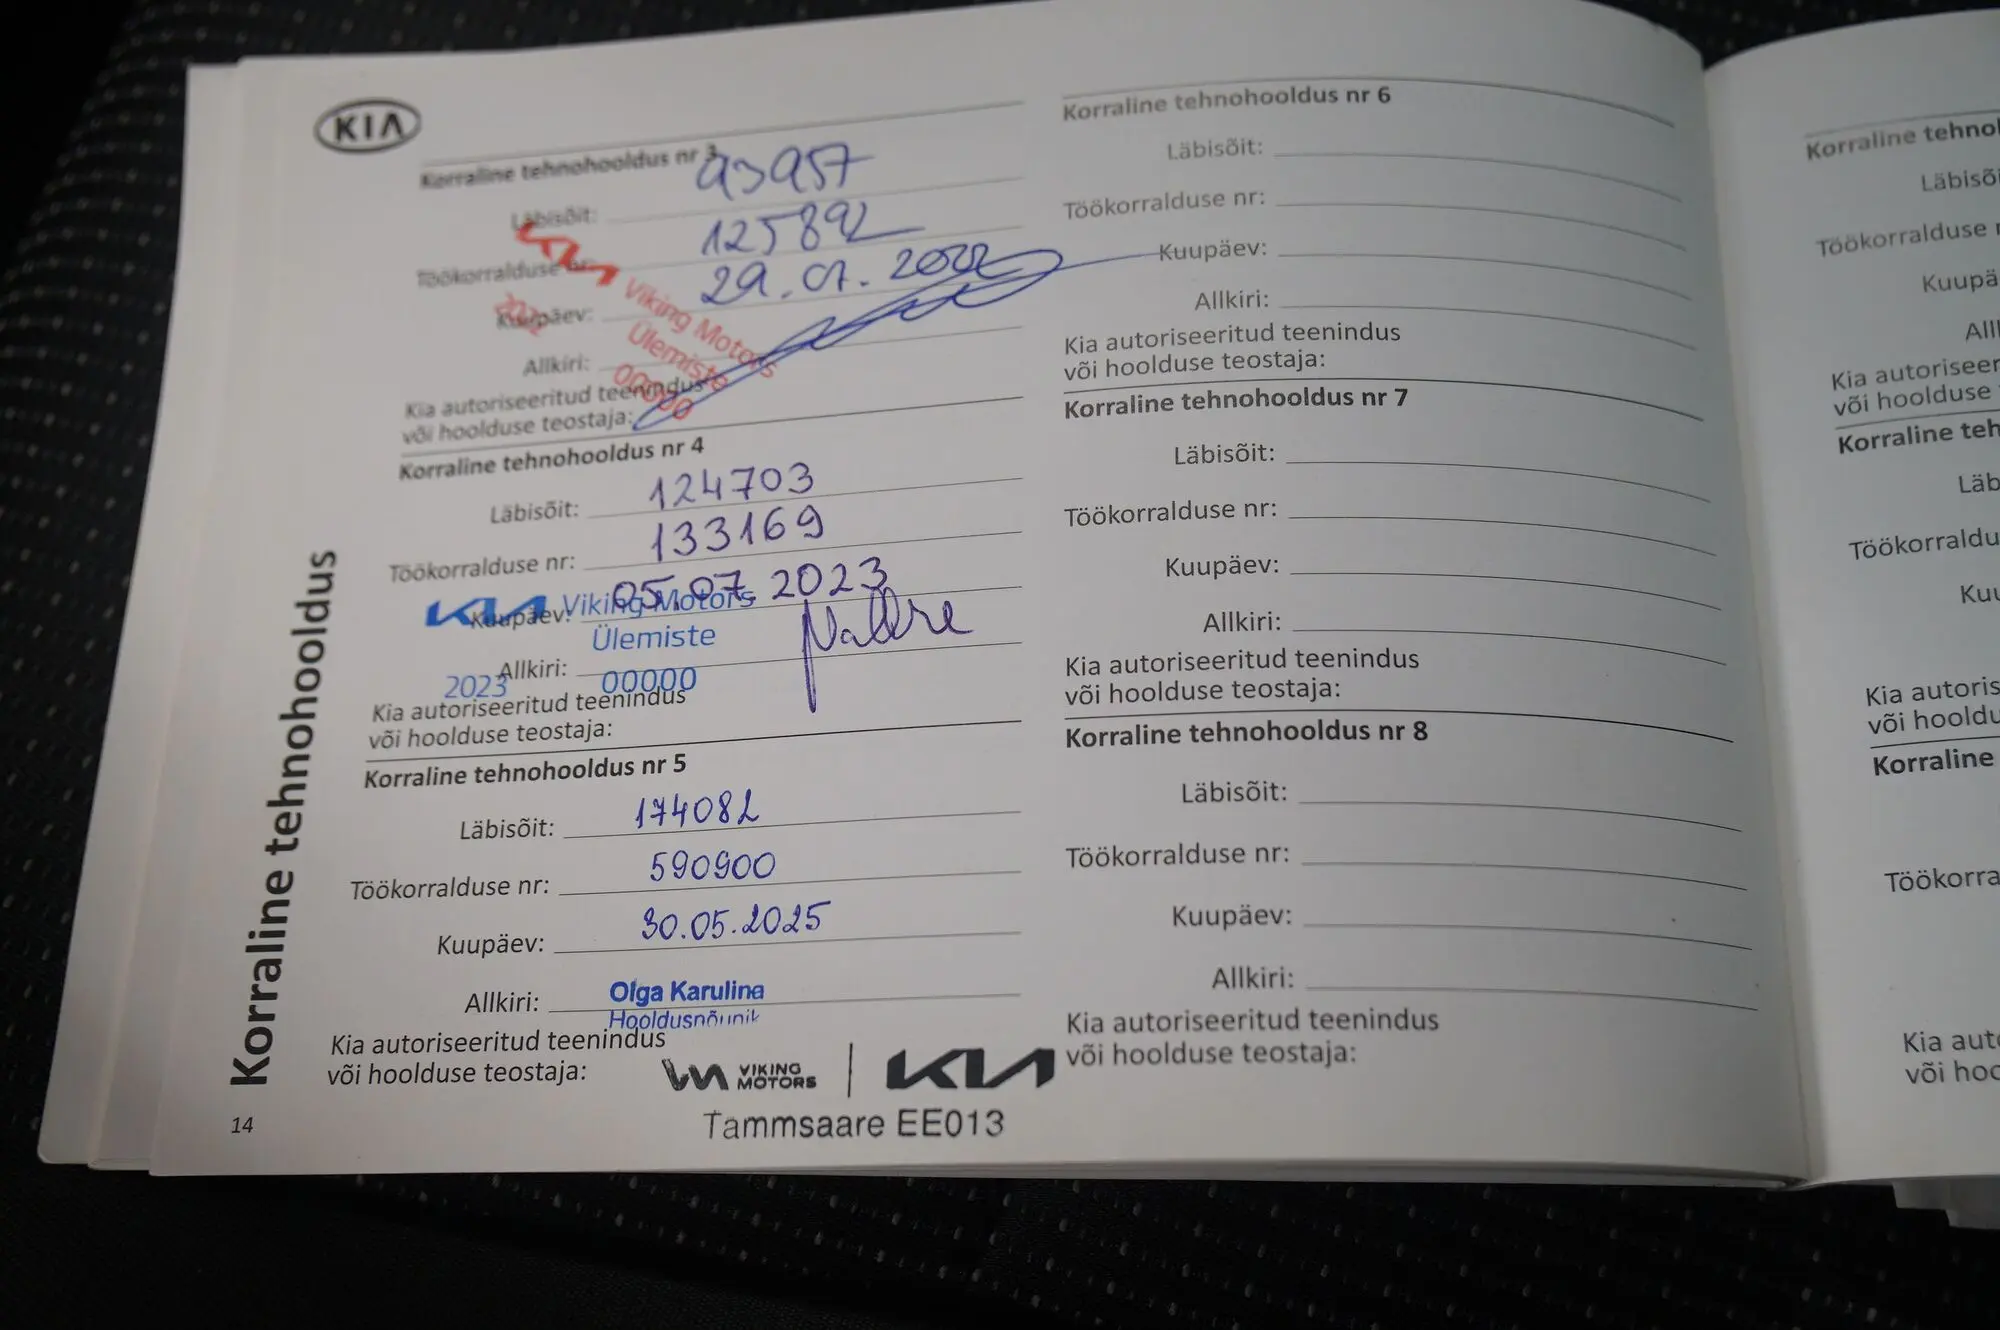 KIA
Korraline tehnohooldus nr 3
Läbisõit: 93957
Töökorralduse nr: 125892
Kuupäev: 29.07.2022
Viking Motors
Ülemiste
00000
Allkiri:
Kia autoriseeritud teenindus
või hoolduse teostaja:
Korraline tehnohooldus nr 4
Läbisõit: 124703
Töökorralduse nr: 133169
Kuupäev: 05.07.2023
KIA Viking Motors
Ülemiste
Allkiri:
2023 00000
Kia autoriseeritud teenindus
või hoolduse teostaja:
Korraline tehnohooldus nr 5
Läbisõit: 174082
Töökorralduse nr: 590900
Kuupäev: 30.05.2025
Allkiri: Olga Karulina
Hooldusnõunik
Kia autoriseeritud teenindus
või hoolduse teostaja:
VIKING
MOTORS
KIA
Tammsaare EE013
Korraline tehnohooldus
14
Korraline tehnohooldus nr 6
Läbisõit:
Töökorralduse nr:
Kuupäev:
Allkiri:
Kia autoriseeritud teenindus
või hoolduse teostaja:
Korraline tehnohooldus nr 7
Läbisõit:
Töökorralduse nr:
Kuupäev:
Allkiri:
Kia autoriseeritud teenindus
või hoolduse teostaja:
Korraline tehnohooldus nr 8
Läbisõit:
Töökorralduse nr:
Kuupäev:
Allkiri:
Kia autoriseeritud teenindus
või hoolduse teostaja:
Korraline tehnol
Läbisõi
Töökorralduse
Kuupä
All
Kia autoriseer
või hoolduse
Korraline teh
Läb
Töökorraldu
Kuu
Kia autoris
või hooldu
Korraline
Töökorra
Kia aut
või hoo